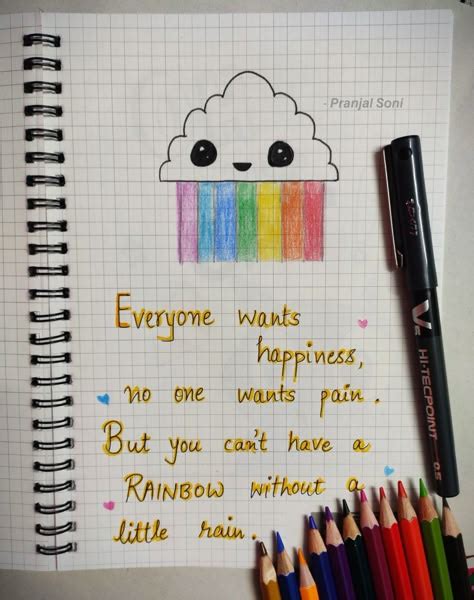 - Pranjal Soni
Everyone wants
happiness,
no one wants pain.
But you can't have a
RAINBOW without a
little rain.
V5
HI-TECPOINT
0.5